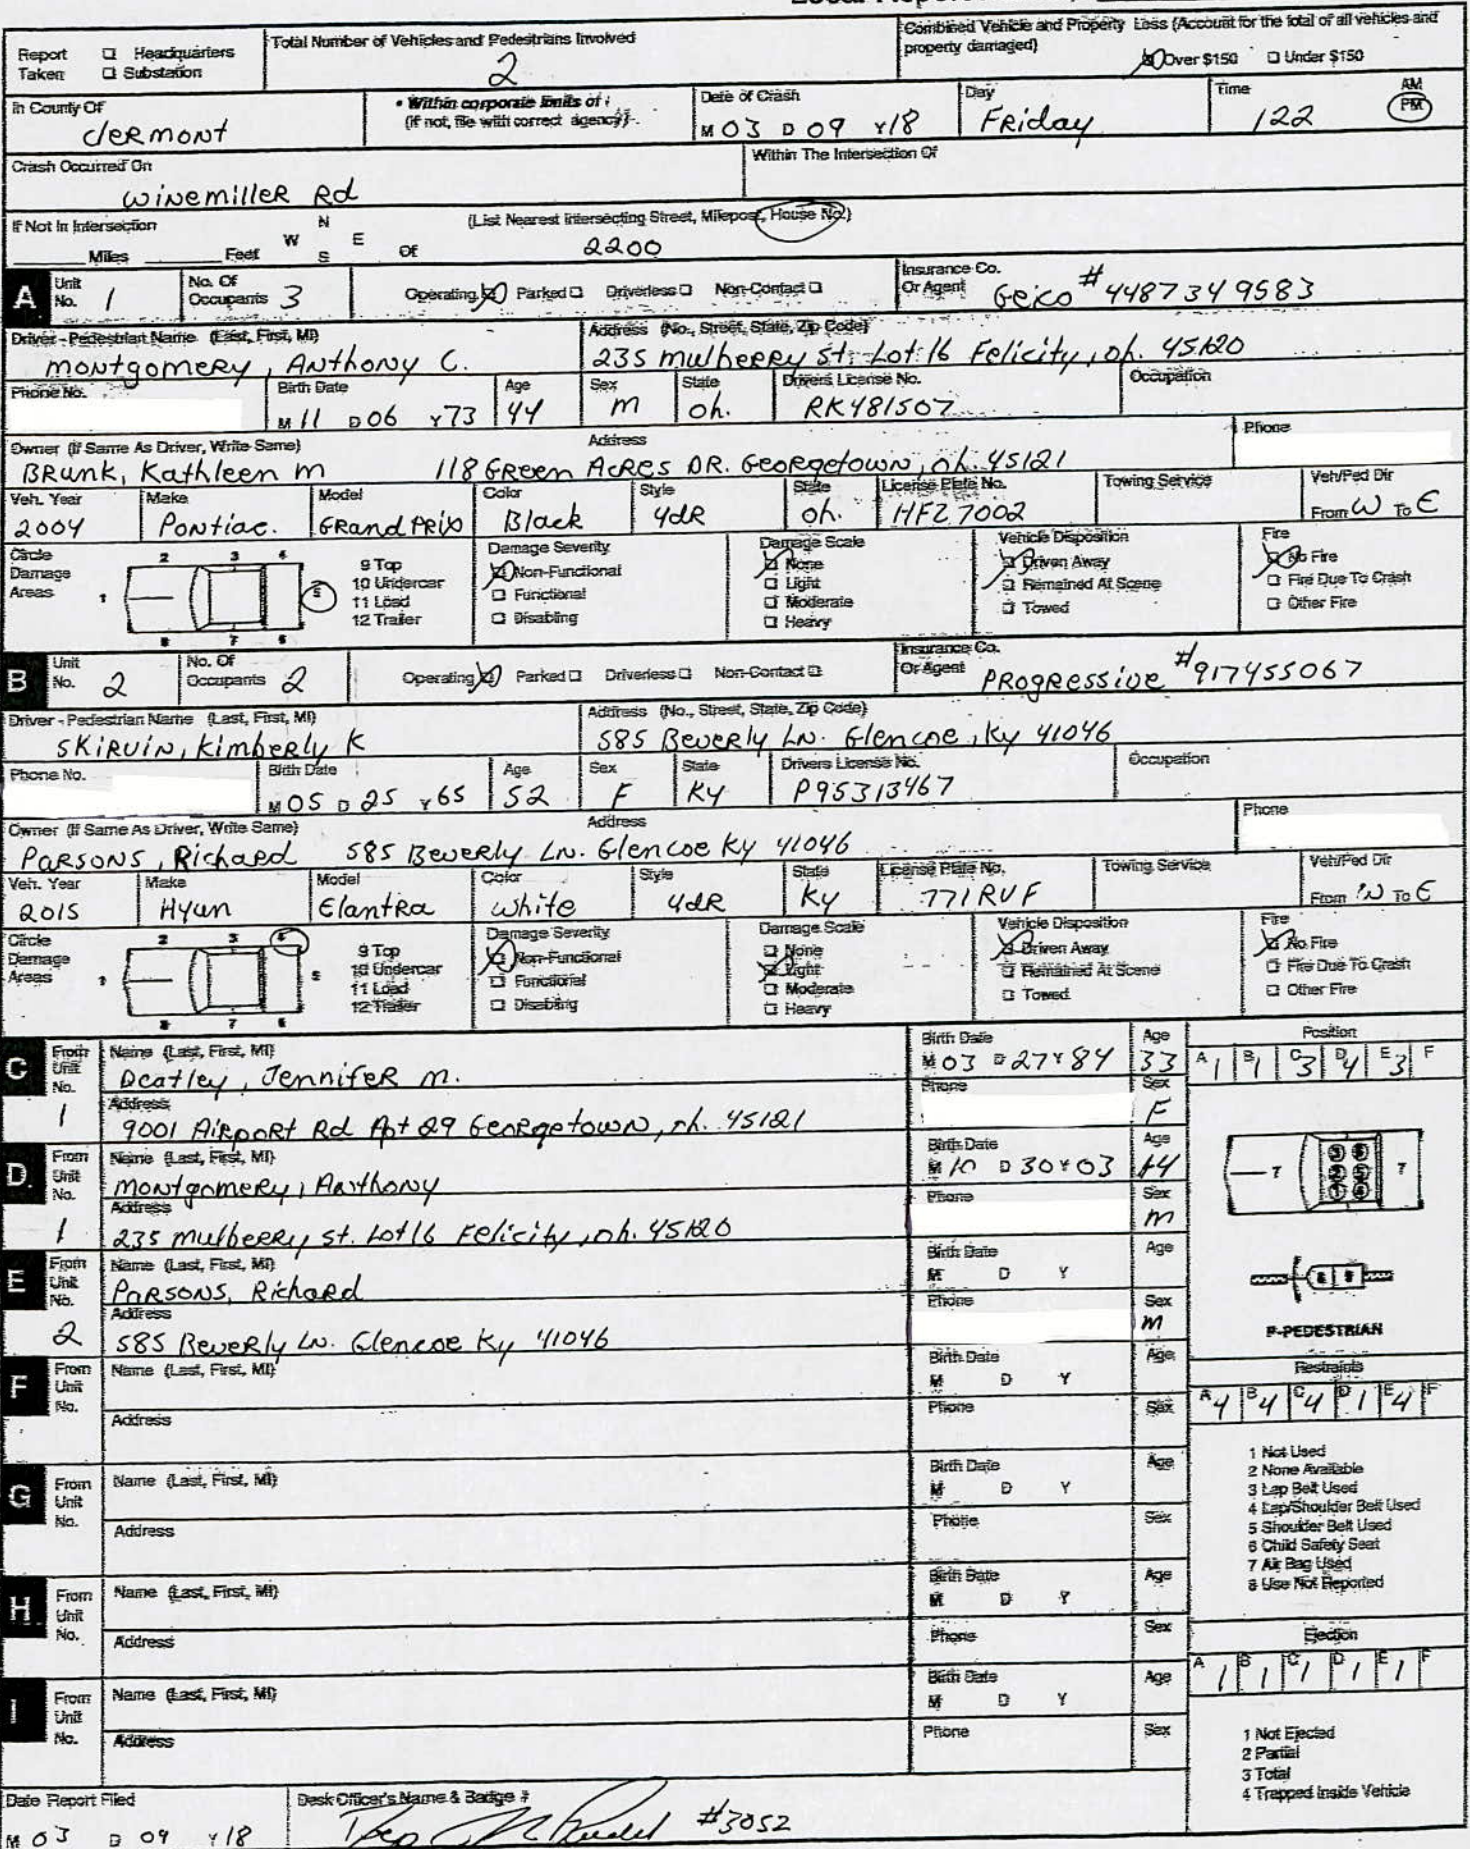 Report Taken ☐ Headquarters ☐ Substation
Total Number of Vehicles and Pedestrians Involved
2
Combined Vehicle and Property Loss (Account for the total of all vehicles and property damaged)
☒ Over $150 ☐ Under $150
In County Of
Clermont
• Within corporate limits of :
(if not, file with correct agency)
Date of Crash
M 03 D 09 Y 18
Day
Friday
Time
122
AM
PM
Crash Occurred On
Winemiller Rd
Within The Intersection Of
If Not In Intersection
Miles Feet N W E S Of
(List Nearest Intersecting Street, Milepost, House No.)
2200
A Unit No. 1
No. Of Occupants 3
Operating ☒ Parked ☐ Driverless ☐ Non-Contact ☐
Insurance Co. Or Agent Geico # 4487349583
Driver - Pedestrian Name (Last, First, MI)
Montgomery, Anthony C.
Address (No., Street, State, Zip Code)
235 mulberry St. Lot 16 Felicity, oh. 45120
Phone No.
Birth Date
M 11 D 06 Y 73
Age
44
Sex
m
State
oh.
Drivers License No.
RK481507
Occupation
Owner (If Same As Driver, Write Same)
Brunk, Kathleen m
Address
118 Green Acres DR. Georgetown, oh. 45121
Phone
Veh. Year
2004
Make
Pontiac.
Model
Grand Prix
Color
Black
Style
4dR
State
oh.
License Plate No.
HFZ7002
Towing Service
Veh/Ped Dir
From W To E
Circle Damage Areas
1 2 3 4 5 6 7 8
9 Top
10 Undercar
11 Load
12 Trailer
Damage Severity
☒ Non-Functional
☐ Functional
☐ Disabling
Damage Scale
☒ None
☐ Light
☐ Moderate
☐ Heavy
Vehicle Disposition
☒ Driven Away
☐ Remained At Scene
☐ Towed
Fire
☒ No Fire
☐ Fire Due To Crash
☐ Other Fire
B Unit No. 2
No. Of Occupants 2
Operating ☒ Parked ☐ Driverless ☐ Non-Contact ☐
Insurance Co. Or Agent Progressive #917455067
Driver - Pedestrian Name (Last, First, MI)
Skirvin, Kimberly K
Address (No., Street, State, Zip Code)
585 Beverly LN. Glencoe, Ky 41046
Phone No.
Birth Date
M 05 D 25 Y 65
Age
52
Sex
F
State
Ky
Drivers License No.
P95313467
Occupation
Owner (If Same As Driver, Write Same)
Parsons, Richard
Address
585 Beverly LN. Glencoe Ky 41046
Phone
Veh. Year
2015
Make
Hyun
Model
Elantra
Color
white
Style
4dR
State
Ky
License Plate No.
771RVF
Towing Service
Veh/Ped Dir
From W To E
Circle Damage Areas
1 2 3 4 5 6 7 8
9 Top
10 Undercar
11 Load
12 Trailer
Damage Severity
☒ Non-Functional
☐ Functional
☐ Disabling
Damage Scale
☐ None
☒ Light
☐ Moderate
☐ Heavy
Vehicle Disposition
☒ Driven Away
☐ Remained At Scene
☐ Towed
Fire
☒ No Fire
☐ Fire Due To Crash
☐ Other Fire
C From Unit No. 1
Name (Last, First, MI)
Deatley, Jennifer m.
Birth Date
M 03 D 27 Y 84
Age
33
Address
9001 Airport Rd Apt 29 Georgetown, oh. 45121
Phone
Sex
F
Position
A 1 B 1 C 3 D 4 E 3 F
D. From Unit No. 1
Name (Last, First, MI)
Montgomery, Anthony
Birth Date
M 10 D 30 Y 03
Age
14
Address
235 mulberry st. Lot 16 Felicity, oh. 45120
Phone
Sex
m
E From Unit No. 2
Name (Last, First, MI)
Parsons, Richard
Birth Date
M D Y
Age
Address
585 Beverly LN. Glencoe Ky 41046
Phone
Sex
m
P-PEDESTRIAN
F From Unit No.
Name (Last, First, MI)
Birth Date
M D Y
Age
Address
Phone
Sex
Restraints
A 4 B 4 C 4 D 1 E 4 F
1 Not Used
2 None Available
3 Lap Belt Used
4 Lap/Shoulder Belt Used
5 Shoulder Belt Used
6 Child Safety Seat
7 Air Bag Used
8 Use Not Reported
G From Unit No.
Name (Last, First, MI)
Birth Date
M D Y
Age
Address
Phone
Sex
H From Unit No.
Name (Last, First, MI)
Birth Date
M D Y
Age
Address
Phone
Sex
Ejection
A 1 B 1 C 1 D 1 E 1 F
1 Not Ejected
2 Partial
3 Total
4 Trapped Inside Vehicle
I From Unit No.
Name (Last, First, MI)
Birth Date
M D Y
Age
Address
Phone
Sex
Date Report Filed
M 03 D 09 Y 18
Desk Officer's Name & Badge #
#3052